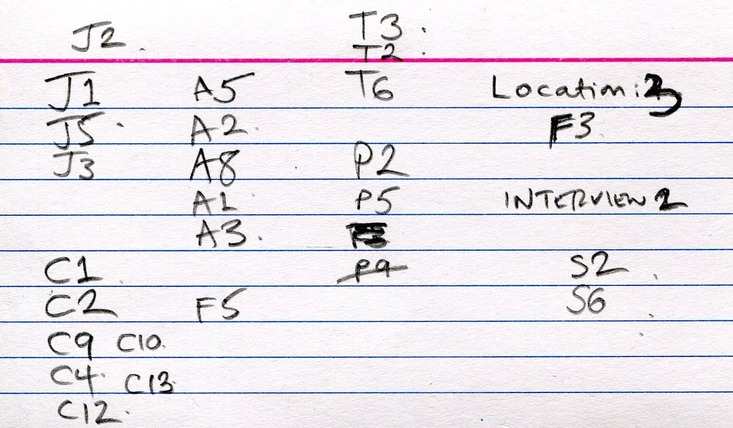 J2.
T3.
T2
J1 A5 T6 Location:
J5. A2. F3
J3 A8 P2
A1 P5 INTERVIEW 2
A3.
C1 P9 S2
C2 F5 S6
C9 C10
C4. C13
C12.